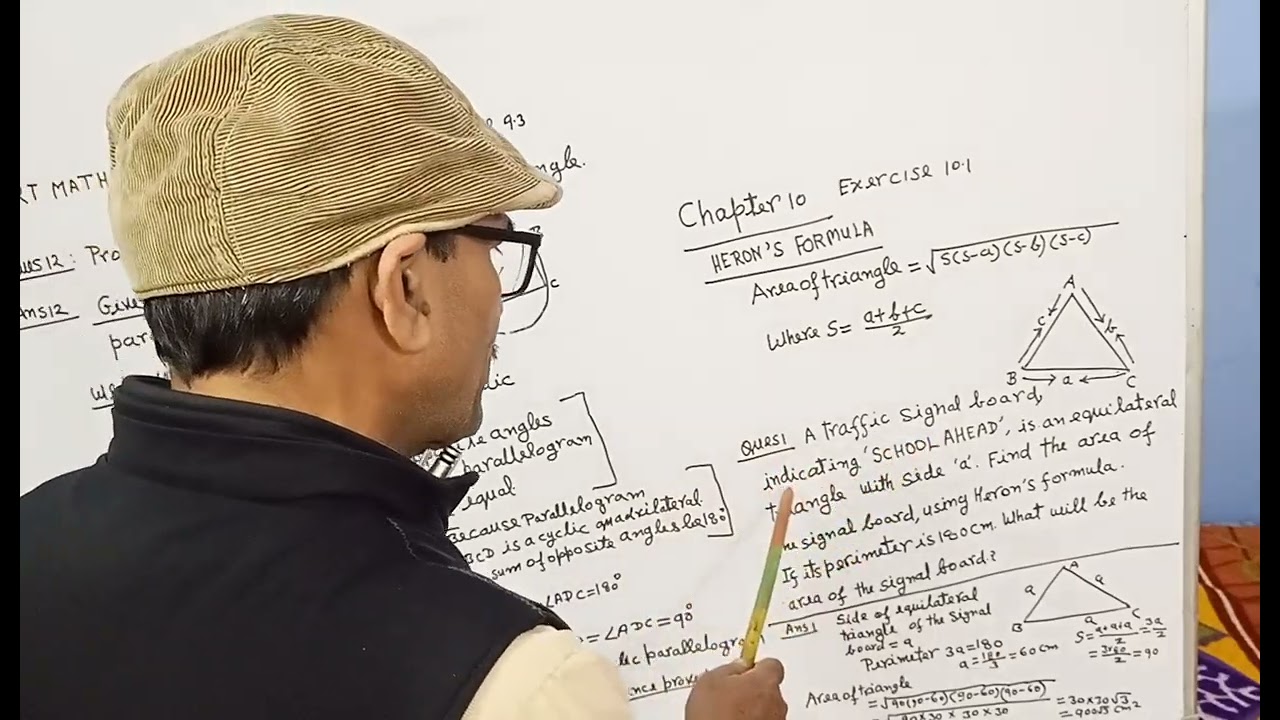 9.3
MATH
ngle.
ues12: Pro
Ans12 Give
par
C
dic
te angles
parallelogram
equal
Because Parallelogram
BCD is a cyclic quadrilateral.
sum of opposite angles be 180°
∠ADC=180°
= ∠ADC = 90°
lic parallelogram
ence prove
Chapter 10 Exercise 10.1
HERON'S FORMULA
Area of triangle = √s(s-a)(s-b)(s-c)
Where S = a+b+c/2
A
c b
B a C
Ques1 A traffic signal board,
indicating 'SCHOOL AHEAD', is an equilateral
triangle with side 'a'. Find the area of
the signal board, using Heron's formula.
If its perimeter is 180 cm. What will be the
area of the signal board?
Ans1 Side of equilateral
triangle of the signal
board = a
Perimeter 3a = 180
a = 180/3 = 60 cm
A
a a
B a C
S = a+a+a/2 = 3a/2
= 3×60/2 = 90
Area of triangle
= √90(90-60)(90-60)(90-60)
= √90 × 30 × 30 × 30
= 30×30√3
= 900√3 cm²